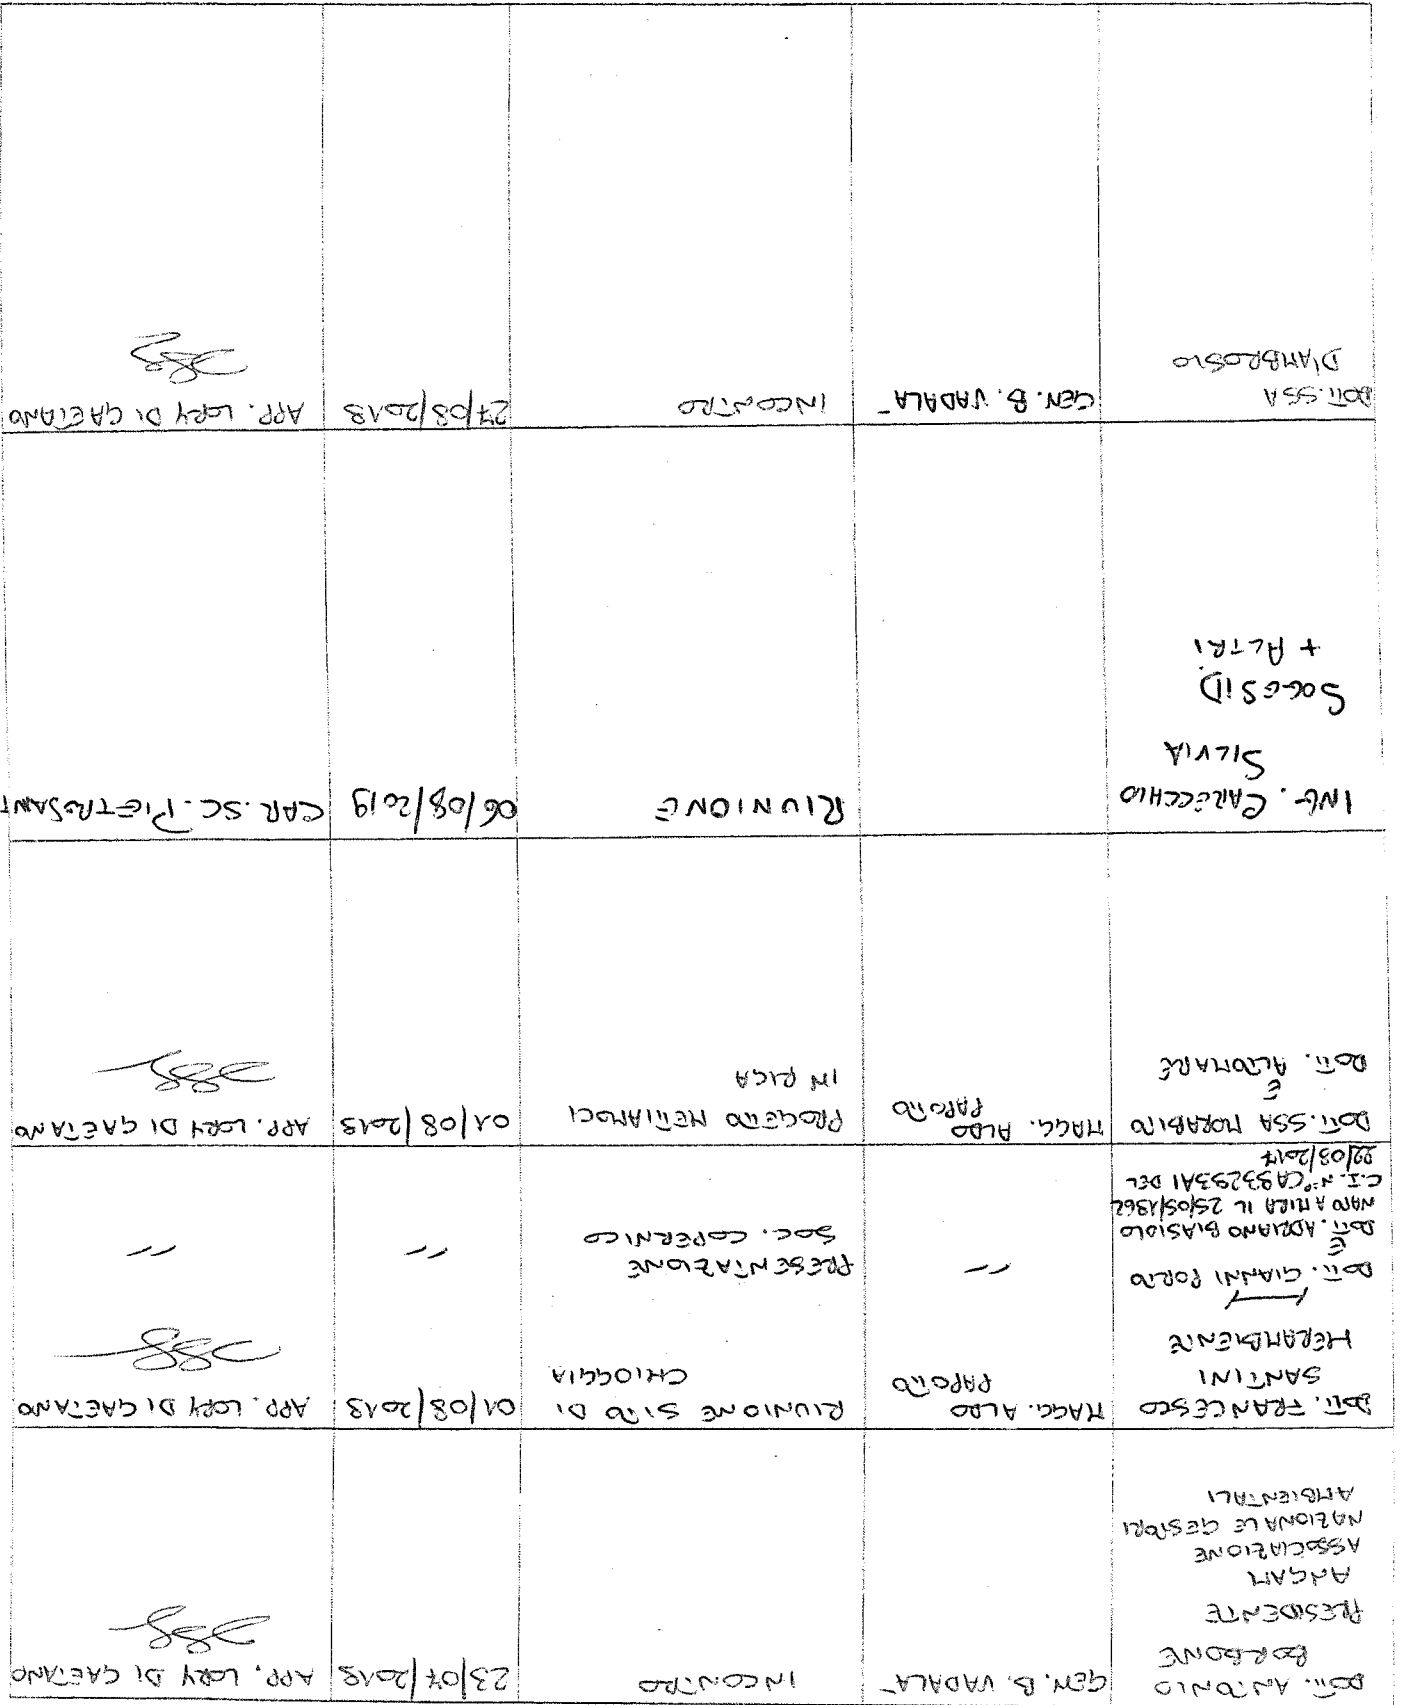 DOTT. ANTONIO
BORBONE
PRESIDENTE
ANGAM
ASSOCIAZIONE
NAZIONALE GESTORI
AMBIENTALI
GEN. B. VADALA'
INCONTRO
23/07/2019
APP. LORY DI GAETANO
DOTT. FRANCESCO
SANTINI
HERAMBIENTE
MAGG. ALDO
PAPOTTO
RIUNIONE SITO DI
CHIOGGIA
01/08/2019
APP. LORY DI GAETANO
DOTT. GIANNI PORTO
E
DOTT. ADRIANO BIASIOLO
NATO A MIRA IL 25/05/1962
C.I. N° DEL
"
PRESENTAZIONE
SOC. COPERNICO
"
"
DOTT.SSA MORABITO
E
DOTT. ALTOMARE
MAGG. ALDO
PAPOTTO
PROGETTO METTIAMOCI
IN RIGA
01/08/2019
APP. LORY DI GAETANO
ING. CARECCHIO
SILVIA
SOGGSID
+ ALTRI
RIUNIONE
06/08/2019
CAR. SC. PIETROSANT
DOTT.SSA
D'AMBROSIO
GEN. B. VADALA'
INCONTRO
27/08/2019
APP. LORY DI GAETANO